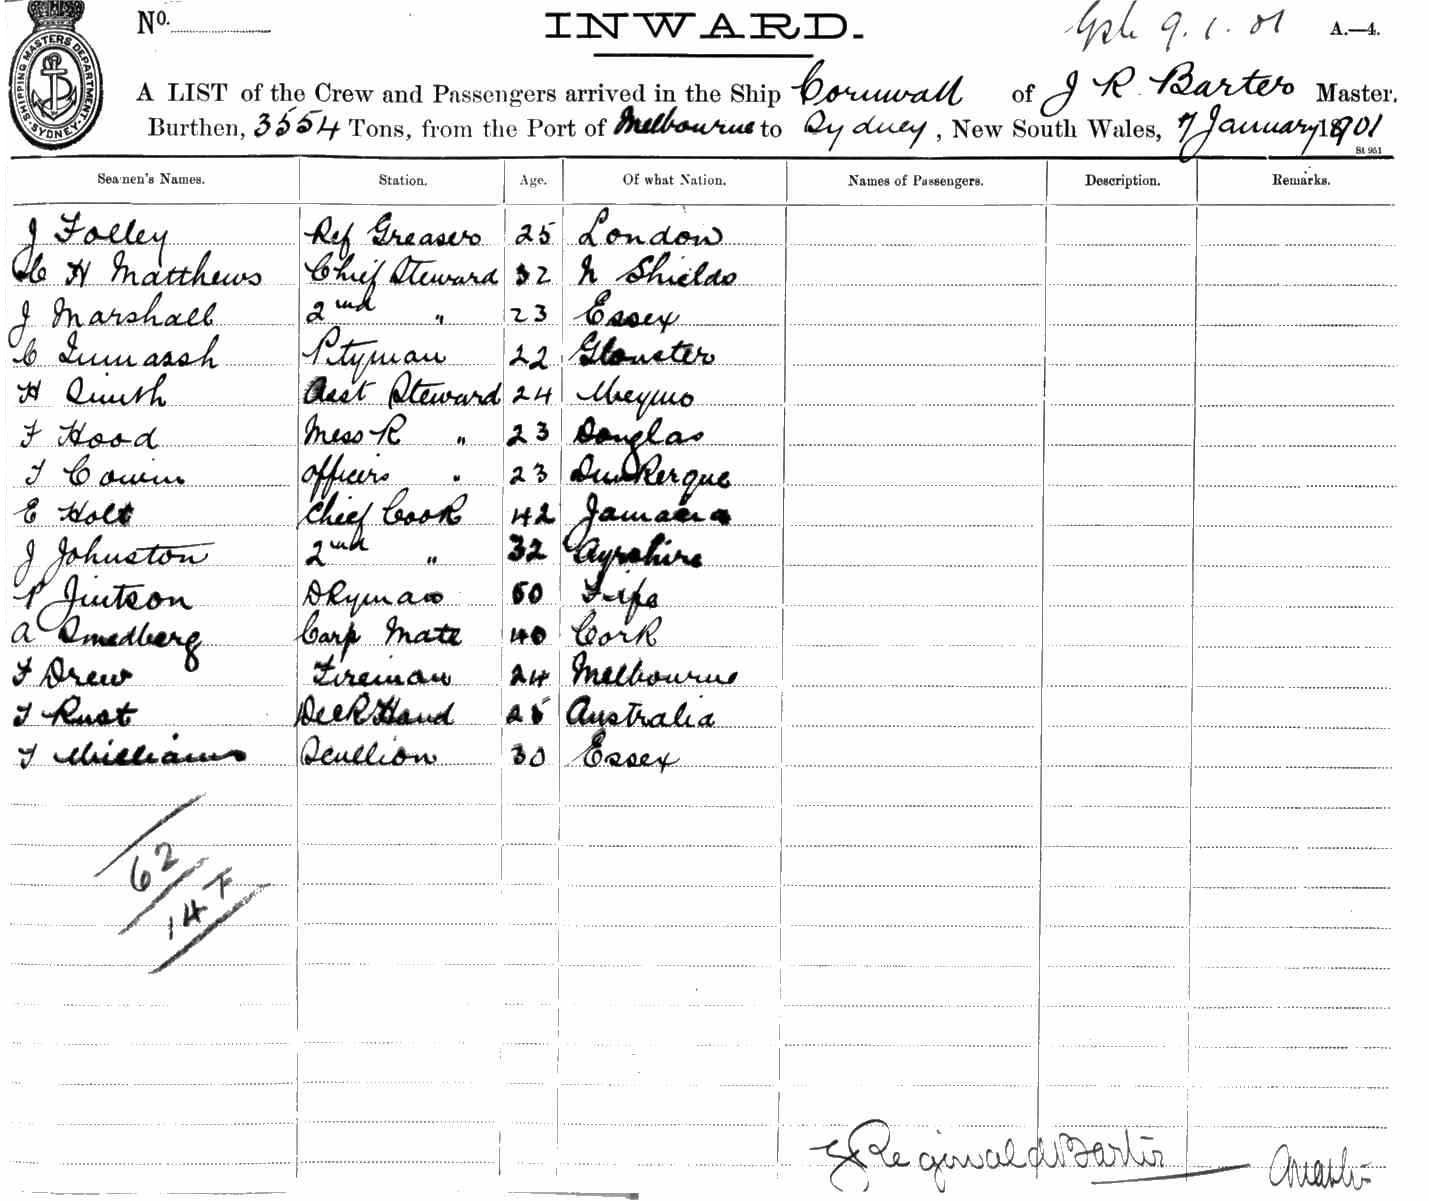 SHIPPING MASTERS DEPARTMENT. SYDNEY.
No. INWARD. 9.1.01 A.—4.
A LIST of the Crew and Passengers arrived in the Ship Cornwall of J R Barter Master.
Burthen, 3554 Tons, from the Port of Melbourne to Sydney, New South Wales, 7 January 1901
St 951
Seamen's Names. Station. Age. Of what Nation. Names of Passengers. Description. Remarks.
J Folley Ref Greaser 25 London
H Matthews Chief Steward 32 N Shields
J Marshall 2nd " 23 Essex
C 22 Glouster
H Smith Asst Steward 24
F Hood Mess R " 23 Douglas
T Cowin officers " 23 Dunkerque
E Holt Chief Cook 42 Jamaica
J Johnston 2nd " 32 Ayrshire
P Dkyman 50 Fife
A Smedberg Carp Mate 40 Cork
F Drew Fireman 24 Melbourne
T Rust Deck Hand 25 Australia
T Williams Scullion 30 Essex
62
14 F
J Reginald Barter